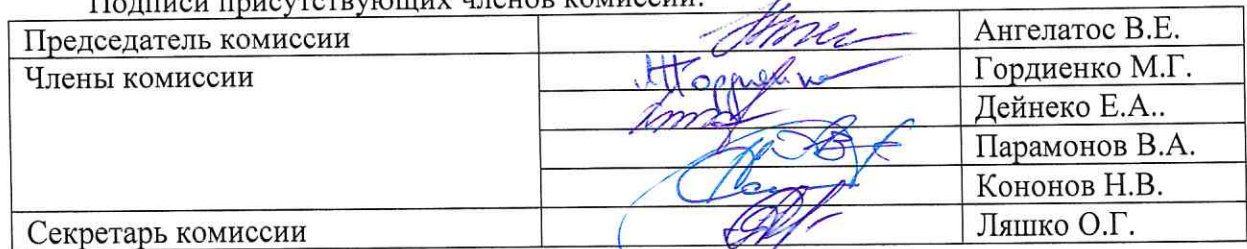 Подписи присутствующих членов комиссии:
Председатель комиссии Ангелатос В.Е.
Члены комиссии Гордиенко М.Г.
Дейнеко Е.А..
Парамонов В.А.
Кононов Н.В.
Секретарь комиссии Ляшко О.Г.